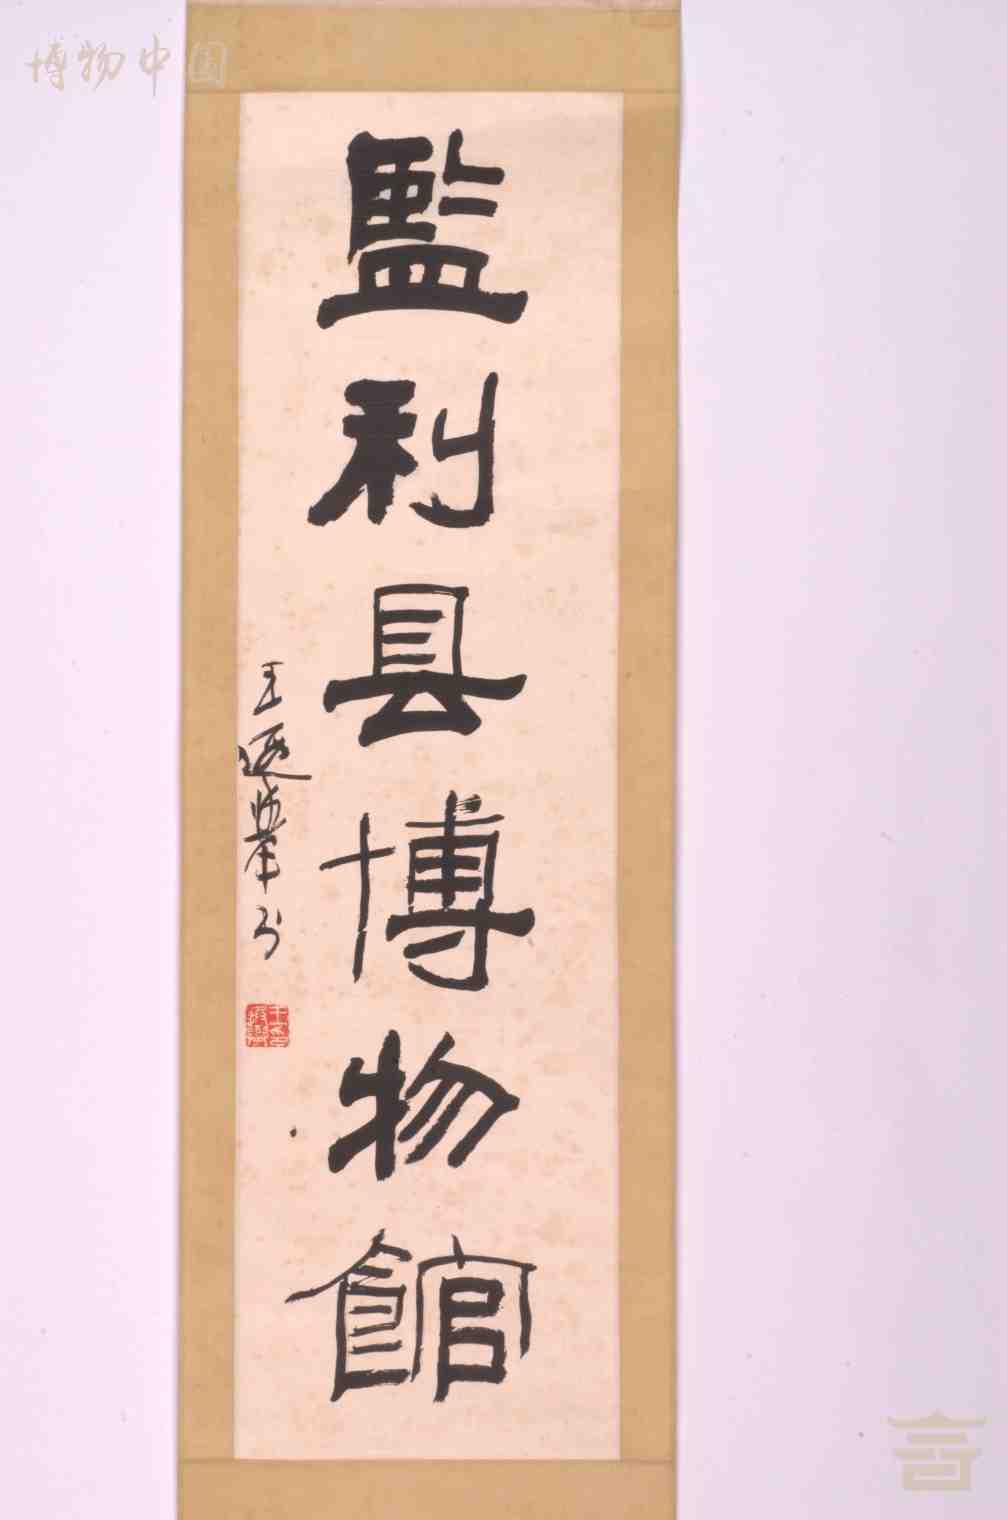 博物中国
監利县博物館
王遐举书